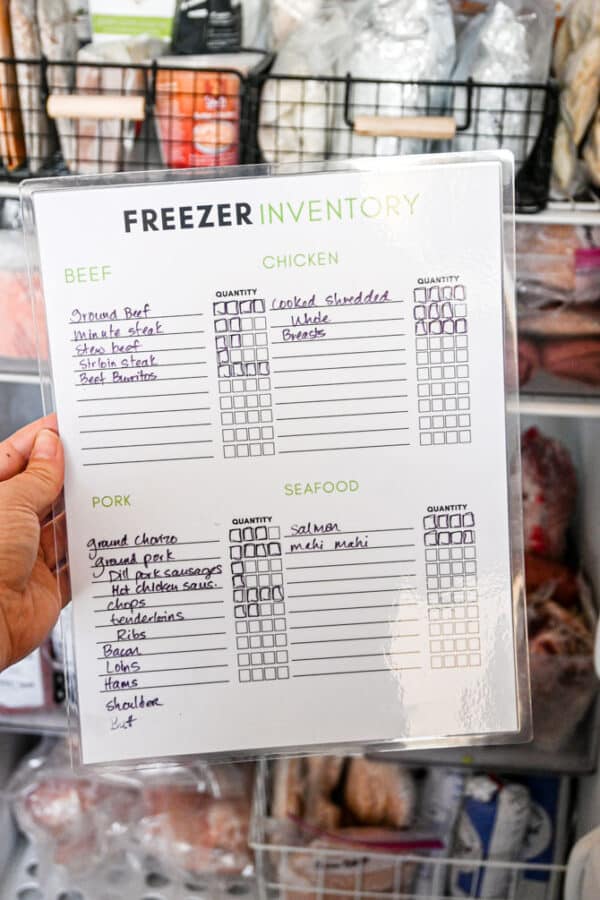 FREEZER INVENTORY
BEEF
QUANTITY
Ground Beef
Minute steak
Stew beef
Sirloin steak
Beef Burritos
CHICKEN
QUANTITY
Cooked Shredded
Whole
Breasts
PORK
QUANTITY
ground chorizo
ground pork
Dill pork sausages
Hot chicken saus.
chops
tenderloins
Ribs
Bacon
Loins
Hams
shoulder
Butt
SEAFOOD
QUANTITY
Salmon
mahi mahi